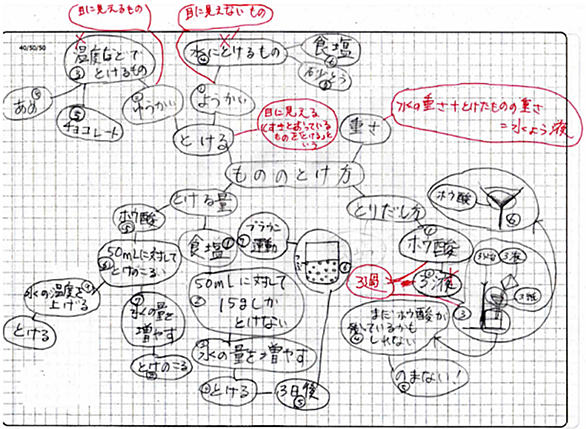 目に見えるもの
目に見えないもの
40/50/50
温度などで
とけるもの
③
水にとけるもの
④
食塩
さとう
あめ
⑤
チョコレート
ゆうかい
ようかい
とける
目に見える
ものを
という
重さ
水の重さ+とけたものの重さ
=水よう液
もののとけ方
とける量
とりだし方
ホウ酸
50mLに対して
とけのこる
水の温度を
上げる
とける
水の量を
増やす
とけのこる
食塩
ブラウン
運動
50mLに対して
15gしか
とけない
水の量を増やす
とける
3日後
⑤
ホウ酸
ろ過
ろ液
③
まだホウ酸が
残っているかも
しれない
のまない!
⑤
ホウ酸
⑥
ろ液